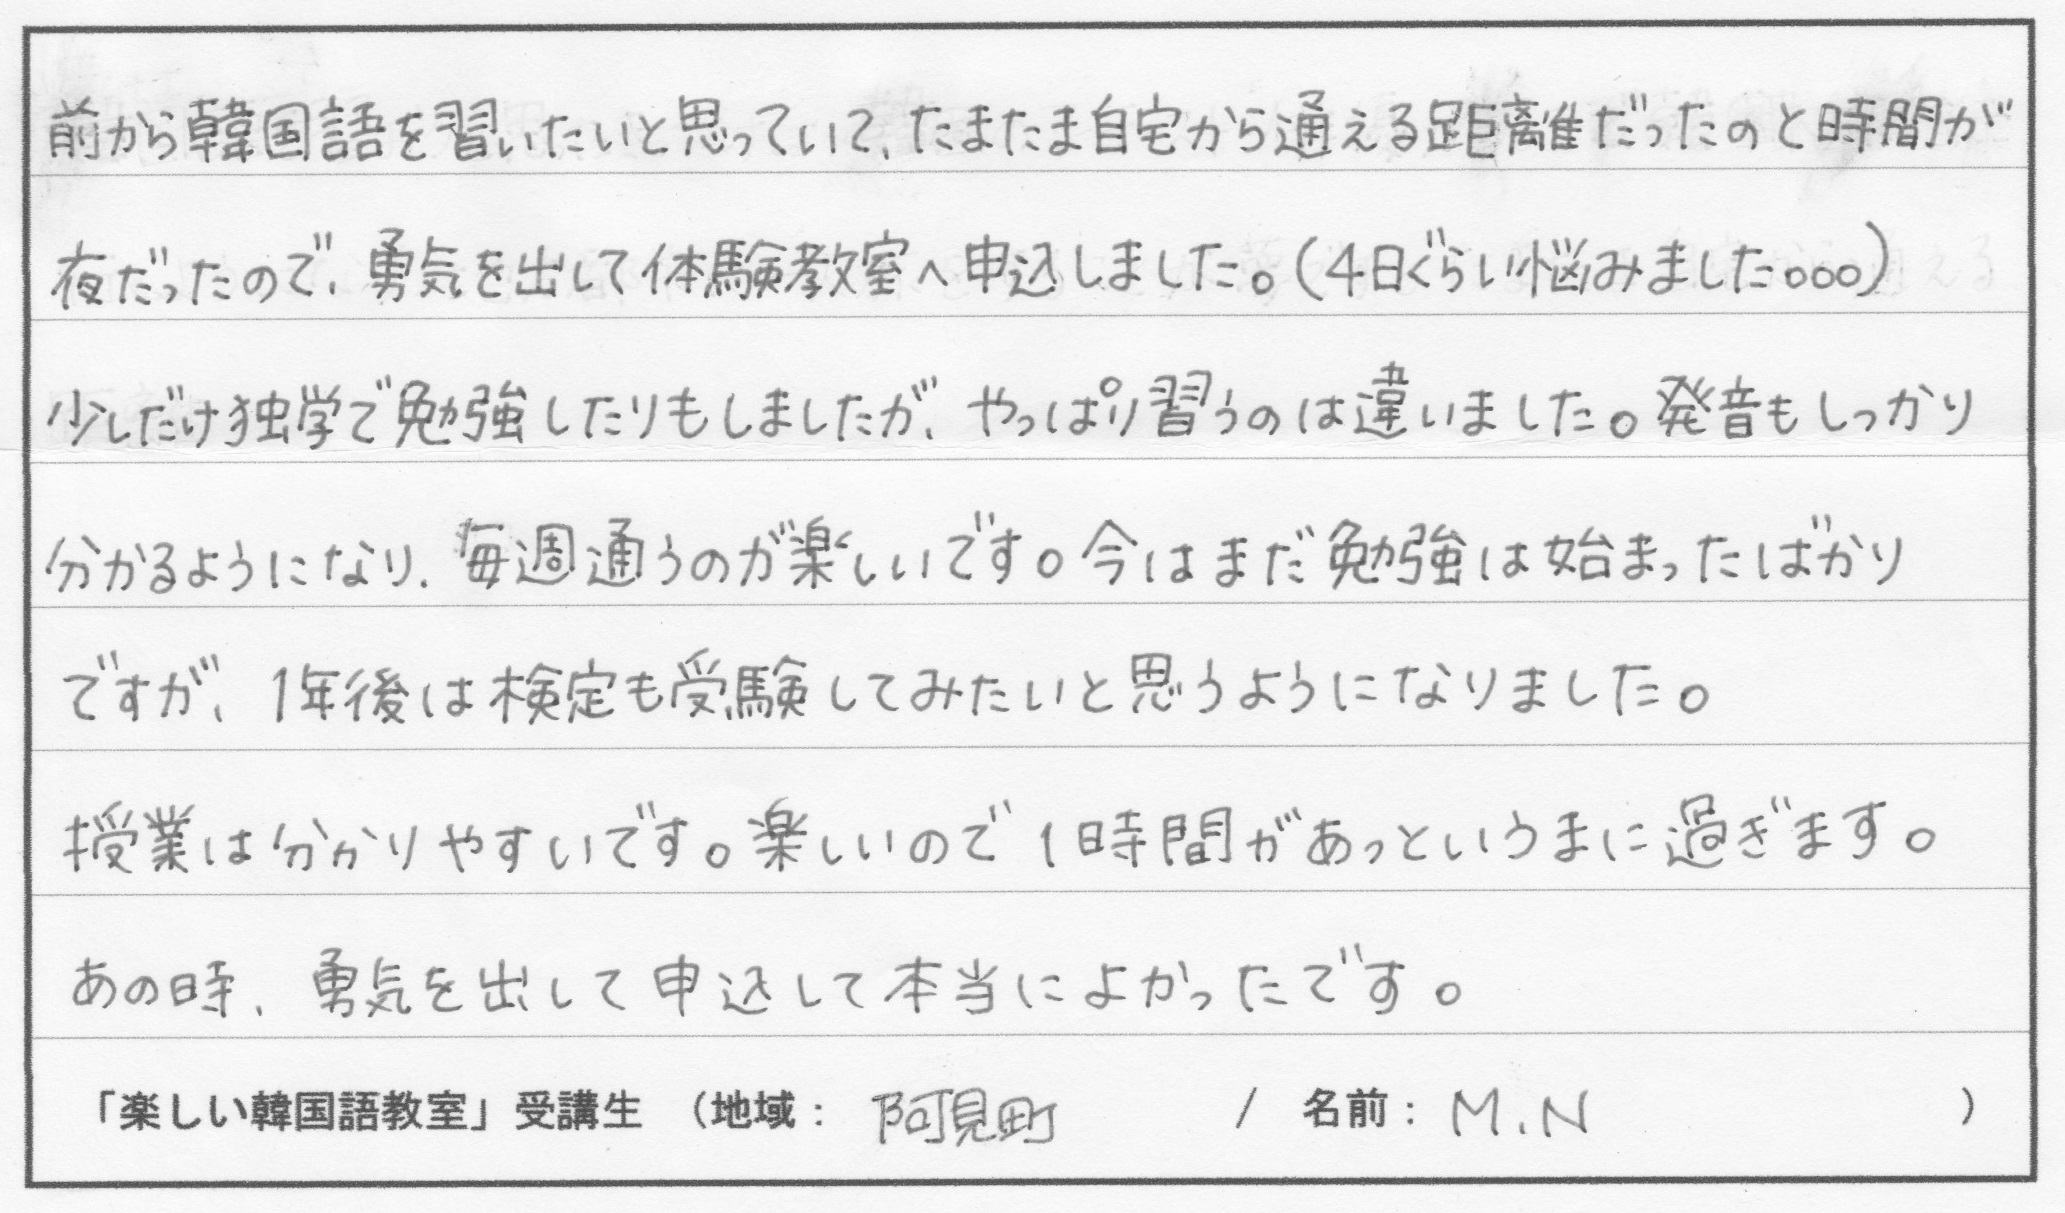 前から韓国語を習いたいと思っていて、たまたま自宅から通える距離だったのと時間が
夜だったので、勇気を出して体験教室へ申込しました。(4日ぐらい悩みました。。。)
少しだけ独学で勉強したりもしましたが、やっぱり習うのは違いました。発音もしっかり
分かるようになり、毎週通うのが楽しいです。今はまだ勉強は始まったばかり
ですが、1年後は検定も受験してみたいと思うようになりました。
授業は分かりやすいです。楽しいので1時間があっというまに過ぎます。
あの時、勇気を出して申込して本当によかったです。
「楽しい韓国語教室」受講生 (地域: 阿見町 / 名前: M.N )